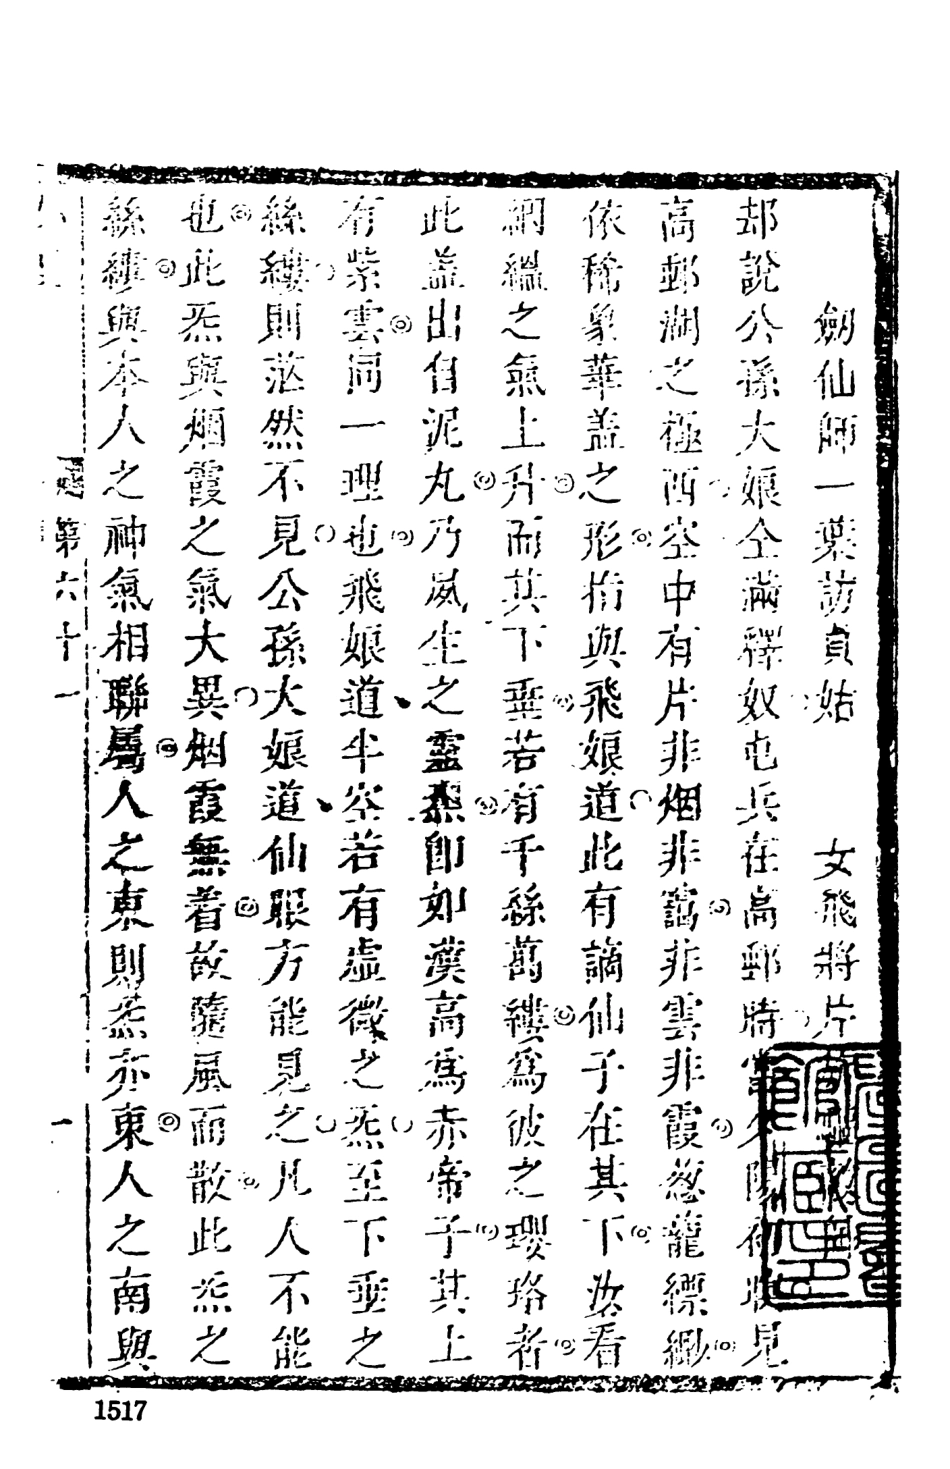 劒仙師一葉訪貞姑　女飛將片
却說公孫大娘仝滿釋奴屯兵在高郵時當夕陽初收見
高郵湖之極西空中有片非烟非靄非雲非霞葱蘢縹緲
依稀象華盖之形指與飛娘道此有謫仙子在其下汝看
絪縕之氣上升而其下垂若有千絲萬縷為彼之瓔珞者
此盖出自泥丸乃夙生之靈炁即如漢高為赤帝子其上
有紫雲同一理也飛娘道半空若有虛微之炁至下垂之
絲縷則茫然不見公孫大娘道仙眼方能見之凡人不能
也此炁與烟霞之氣大異烟霞無着故隨風而散此炁之
絲縷與本人之神氣相聯屬人之東則炁亦東人之南與
第六十一
一
1517